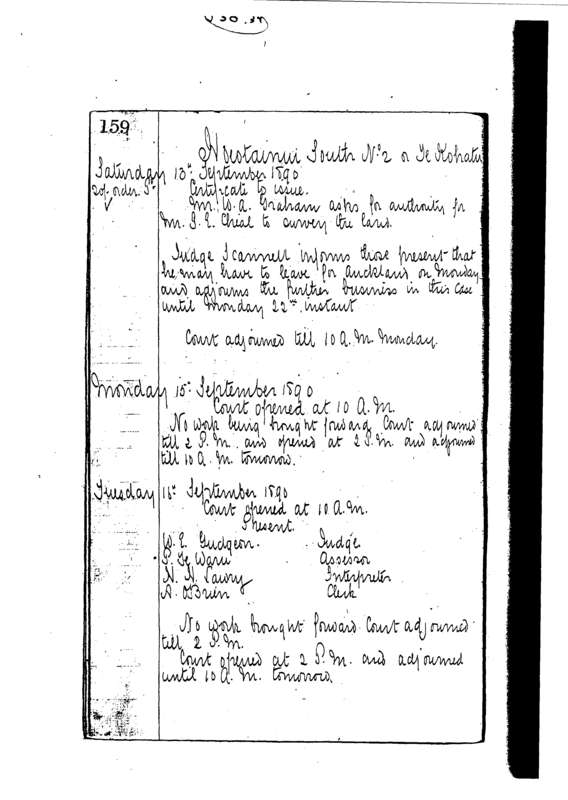 V30.34
159
Hoeotainui South No 2 or Te Kohatu
Saturday 13th September 1890
20/- order Pd
Certificate to issue.
Mr. W. A. Graham asks for authority for
Mr. G. E. Cheal to survey the land.
Judge Scannell informs those present that
he may have to leave for Auckland on Monday
and adjourns the further business in this case
until Monday 22nd instant
Court adjourned till 10 A.M. Monday.
Monday 15th September 1890
Court opened at 10 A.M.
No work being brought forward Court adjourned
till 2 P.M. and opened at 2 P.M. and adjourned
till 10 A.M. tomorrow.
Tuesday 16th September 1890
Court opened at 10 A.M.
Present.
W. E. Gudgeon. Judge.
P. Te Waru Assessor
H. H. Lawry Interpreter
A. O'Brien Clerk
No work brought forward Court adjourned
till 2 P.M.
Court opened at 2 P.M. and adjourned
until 10 A.M. tomorrow.